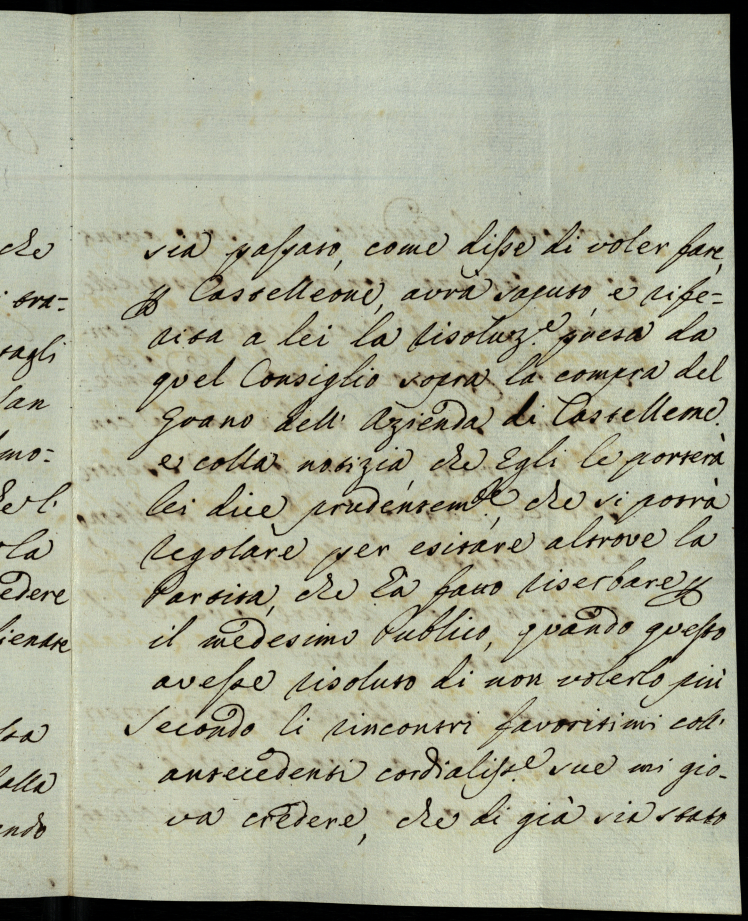 che
tra=
tagli
San
mo=
che l'
la
edere
lienare
sta
dalla
ando
sia passato, come disse di voler fare,
p Castelleone, avrà saputo, e rife=
rita a lei la risoluz.e presa da
quel Consiglio sopra la compra del
Grano dell' Azienda di Castelleone.
e colla notizia che Egli le porterà
lei dice prudentem.te che si potrà
regolare per esitare altrove la
Partita, che hà fatto riserbare p
il medesimo Publico, quando questo
avesse risoluto di non volerlo più
Secondo li rincontri favoritimi coll'
antecedenti cordialiss.e sue mi gio-
va credere, che di già sia stato